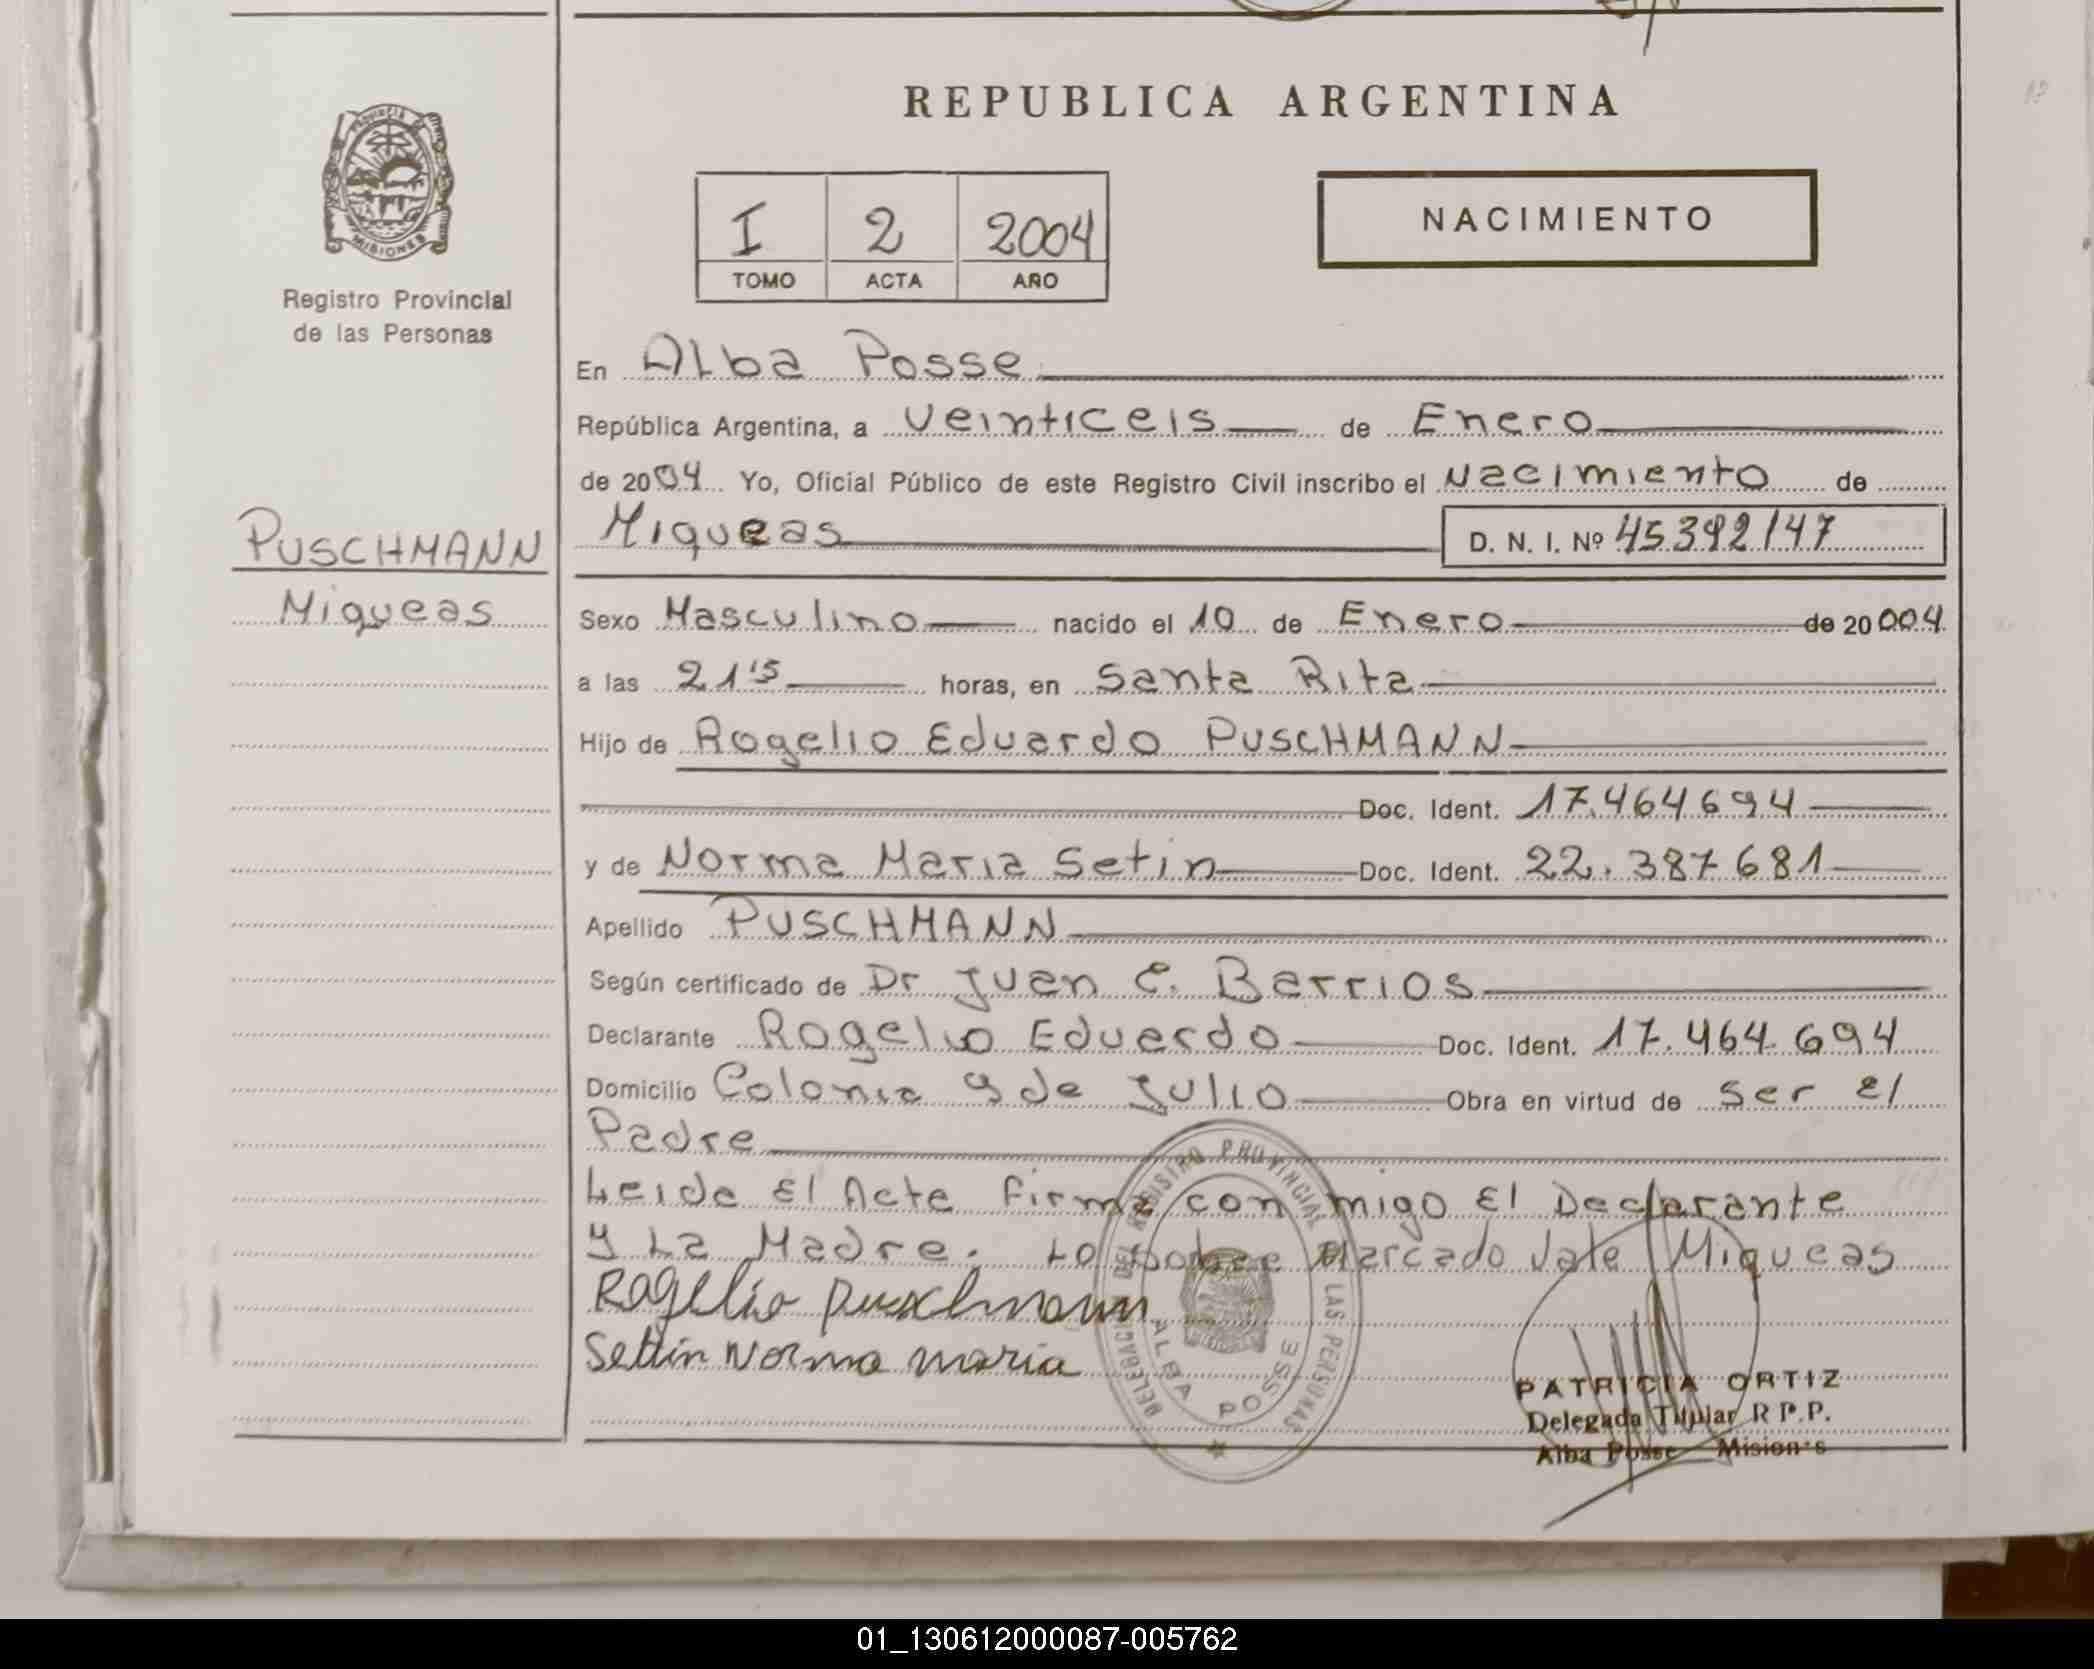 REPUBLICA ARGENTINA
PROVINCIA DE
MISIONES
Registro Provincial
de las Personas
I 2 2004
TOMO ACTA AÑO
NACIMIENTO
En Alba Posse
República Argentina, a veinticeis de Enero
de 2004 Yo, Oficial Público de este Registro Civil inscribo el Nacimiento de
Miqueas D. N. I. Nº 45392147
PUSCHMANN
Miqueas
Sexo Masculino nacido el 10 de Enero de 20004
a las 21 15 horas, en Santa Rita
Hijo de Rogelio Eduardo PUSCHMANN
Doc. Ident. 17.464694
y de Norma Maria Setin Doc. Ident. 22.387681
Apellido PUSCHMANN
Según certificado de Dr Juan E. Barrios
Declarante Rogelio Eduardo Doc. Ident. 17.464.694
Domicilio Colonia 9 de Julio Obra en virtud de ser el
Padre
Leida El Acta firma con migo El Declarante
y La Madre. Lo sobre Marcado Vale Miqueas
Rogelio Puschmann
Settin Norma maria
DELEGACION DEL REGISTRO PROVINCIAL DE LAS PERSONAS
ALBA POSSE
PATRICIA ORTIZ
Delegada Titular R P.P.
Alba Posse Mision s
01_130612000087-005762